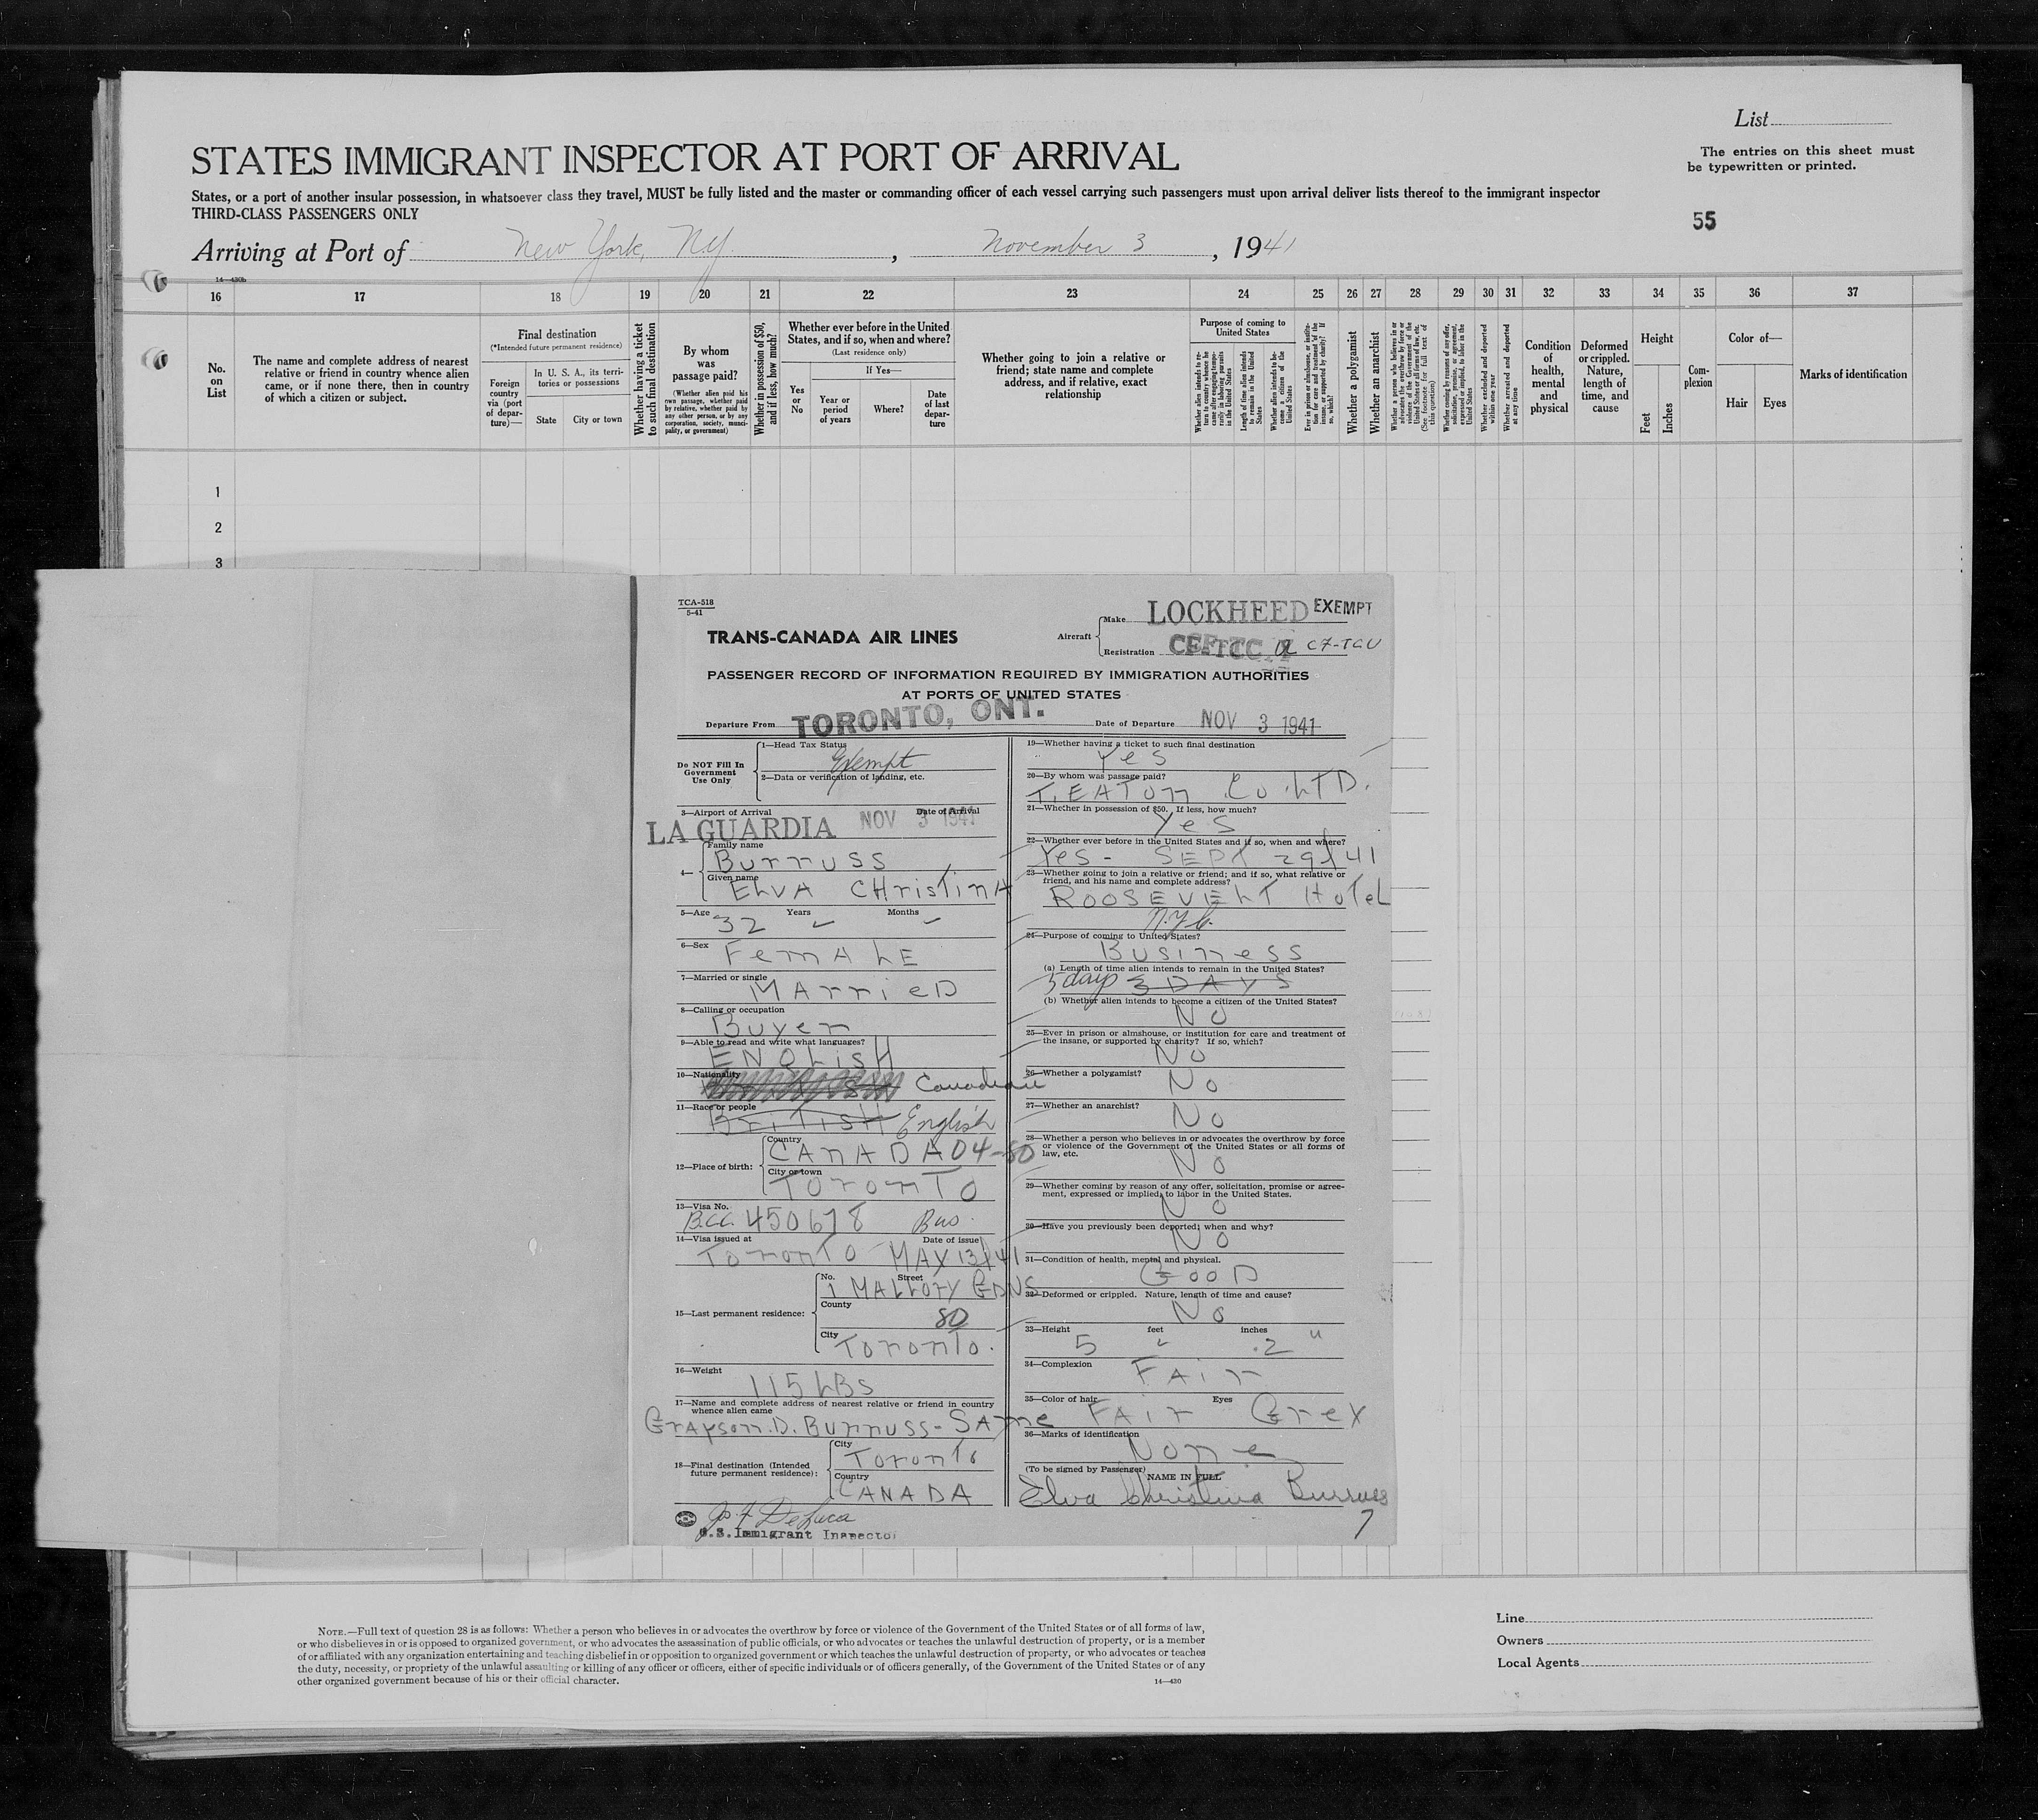 List
STATES IMMIGRANT INSPECTOR AT PORT OF ARRIVAL
The entries on this sheet must
be typewritten or printed.
States, or a port of another insular possession, in whatsoever class they travel, MUST be fully listed and the master or commanding officer of each vessel carrying such passengers must upon arrival deliver lists thereof to the immigrant inspector
THIRD-CLASS PASSENGERS ONLY
55
Arriving at Port of New York, N.Y. , November 3 , 1941
14—430b
16 17 18 19 20 21 22 23 24 25 26 27 28 29 30 31 32 33 34 35 36 37
No. on List
The name and complete address of nearest
relative or friend in country whence alien
came, or if none there, then in country
of which a citizen or subject.
Final destination
(*Intended future permanent residence)
Foreign country via (port of departure)—
In U. S. A., its territories or possessions
State City or town
Whether having a ticket to such final destination
By whom was passage paid?
(Whether alien paid his own passage, whether paid by relative, whether paid by any other person, or by any corporation, society, municipality, or government)
Whether in possession of $50, and if less, how much?
Whether ever before in the United
States, and if so, when and where?
(Last residence only)
Yes or No
If Yes—
Year or period of years
Where?
Date of last departure
Whether going to join a relative or
friend; state name and complete
address, and if relative, exact
relationship
Purpose of coming to United States
Whether alien intends to return to country whence he came after engaging temporarily in laboring pursuits in the United States
Length of time alien intends to remain in the United States
Whether alien intends to become a citizen of the United States
Ever in prison or almshouse, or institution for care and treatment of the insane, or supported by charity? If so, which?
Whether a polygamist
Whether an anarchist
Whether a person who believes in or advocates the overthrow by force or violence of the Government of the United States or all forms of law, etc. (See footnote for full text of this question)
Whether coming by reasons of any offer, solicitation, promise, or agreement, expressed or implied, to labor in the United States
Whether excluded and deported within one year
Whether arrested and deported at any time
Condition of health, mental and physical
Deformed or crippled. Nature, length of time, and cause
Height
Feet Inches
Complexion
Color of—
Hair Eyes
Marks of identification
1
2
3
TCA-518
5-41
TRANS-CANADA AIR LINES
Aircraft
Make LOCKHEED EXEMPT
Registration CF-TCU
PASSENGER RECORD OF INFORMATION REQUIRED BY IMMIGRATION AUTHORITIES
AT PORTS OF UNITED STATES
Departure From TORONTO, ONT. Date of Departure NOV 3 1941
Do NOT Fill In
Government
Use Only
1—Head Tax Status
Exempt
2—Data or verification of landing, etc.
3—Airport of Arrival Date of Arrival
LA GUARDIA NOV 3 1941
4— Family name
Burruss
Given name
ELVA CHristinA
5—Age 32 Years Months
6—Sex
FemALE
7—Married or single
MArrieD
8—Calling or occupation
Buyer
9—Able to read and write what languages?
ENGLisH
10—Nationality
Canadian
11—Race or people
BriTisH English
12—Place of birth:
Country
CAnADA 04-80
City or town
ToronTo
13—Visa No.
B.C.C. 450678 Bus.
14—Visa issued at Date of issue
ToronTo MAY 13/41
15—Last permanent residence:
No. Street
1 MALLOry GDNS
County
80
City
Toronto.
16—Weight
115 LBS
17—Name and complete address of nearest relative or friend in country
whence alien came
GrAyson.D.Burruss-SAme
18—Final destination (Intended
future permanent residence):
City
Toronto
Country
CANADA
Jos F DeLuca
U.S. Immigrant Inspector
19—Whether having a ticket to such final destination
Yes
20—By whom was passage paid?
T. EATon Co. LTD.
21—Whether in possession of $50. If less, how much?
Yes
22—Whether ever before in the United States and if so, when and where?
Yes - SEPT 29/41
23—Whether going to join a relative or friend; and if so, what relative or
friend, and his name and complete address?
ROOSEVELT HoTeL
N.Y.C.
24—Purpose of coming to United States?
Business
(a) Length of time alien intends to remain in the United States?
5 days 3 DAYS
(b) Whether alien intends to become a citizen of the United States?
No
25—Ever in prison or almshouse, or institution for care and treatment of
the insane, or supported by charity? If so, which?
No
26—Whether a polygamist?
No
27—Whether an anarchist?
No
28—Whether a person who believes in or advocates the overthrow by force
or violence of the Government of the United States or all forms of
law, etc.
No
29—Whether coming by reason of any offer, solicitation, promise or agree-
ment, expressed or implied, to labor in the United States.
No
30—Have you previously been deported; when and why?
No
31—Condition of health, mental and physical.
GooD
32—Deformed or crippled. Nature, length of time and cause?
No
33—Height feet inches
5 2 "
34—Complexion
FAir
35—Color of hair Eyes
FAir Grey
36—Marks of identification
None
(To be signed by Passenger) NAME IN FULL
Elva Christina Burruss
7
NOTE.—Full text of question 28 is as follows: Whether a person who believes in or advocates the overthrow by force or violence of the Government of the United States or of all forms of law,
or who disbelieves in or is opposed to organized government, or who advocates the assassination of public officials, or who advocates or teaches the unlawful destruction of property, or is a member
of or affiliated with any organization entertaining and teaching disbelief in or opposition to organized government or which teaches the unlawful destruction of property, or who advocates or teaches
the duty, necessity, or propriety of the unlawful assaulting or killing of any officer or officers, either of specific individuals or of officers generally, of the Government of the United States or of any
other organized government because of his or their official character.
14—430
Line
Owners
Local Agents